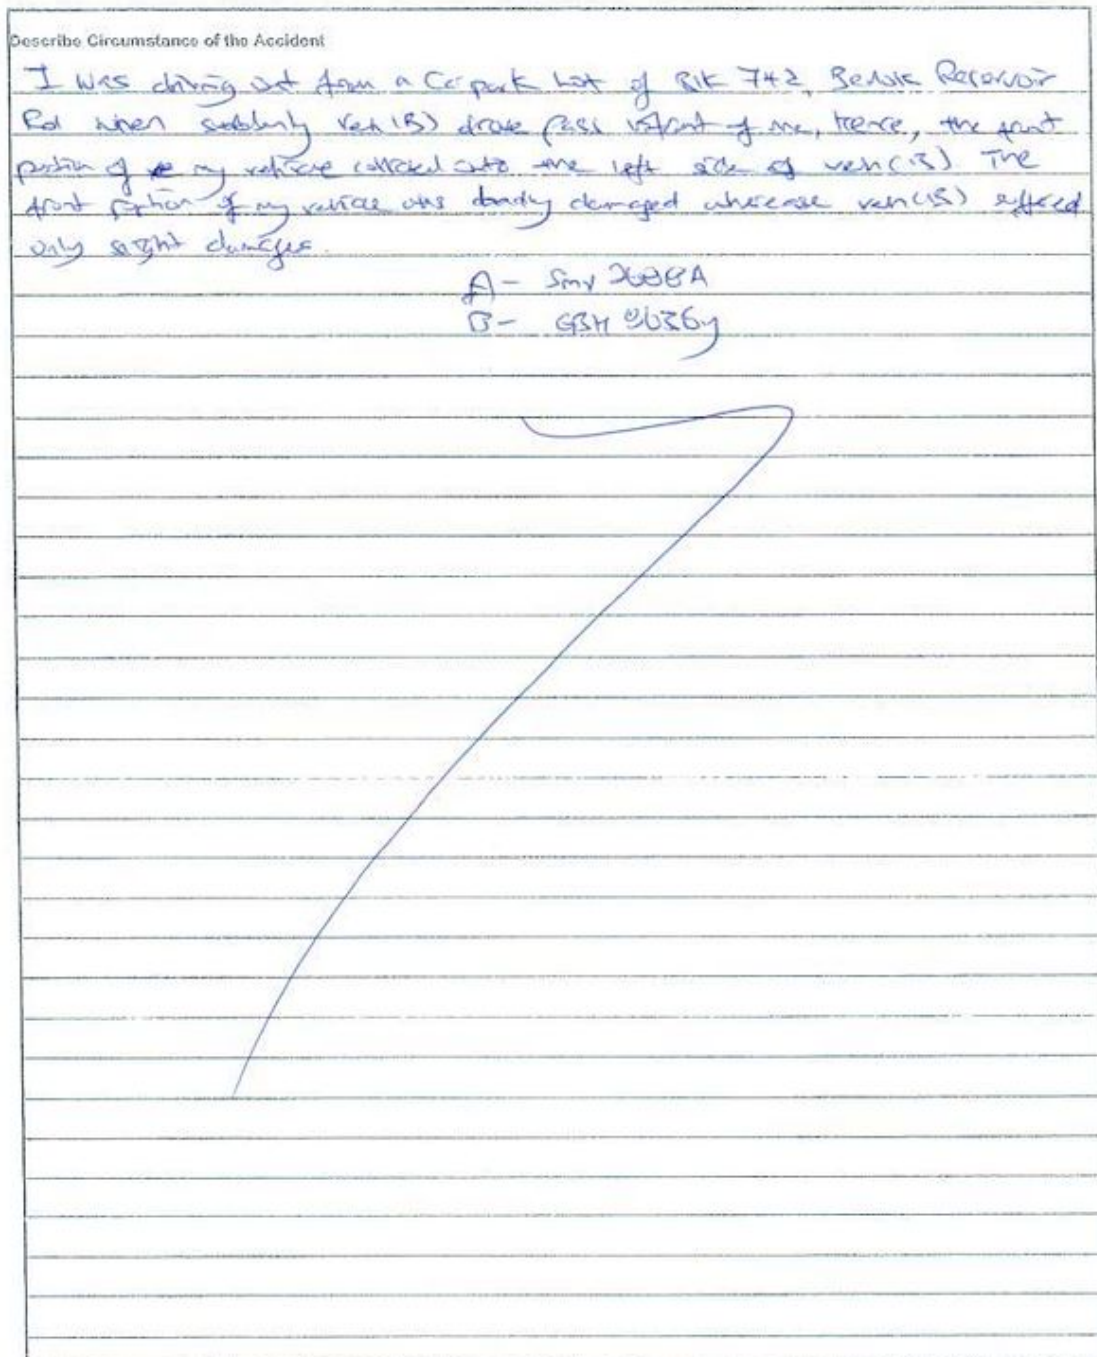 Describe Circumstance of the Accident
I was driving out from a Carpark Lot of Blk 742, Bedok Reservoir
Rd when suddenly veh (B) drove pass infront of me, hence, the front
portion of my vehicle collided onto the left side of veh (B). The
front portion of my vehicle was damaged wherease veh (B) suffered
only slight damages.
A -
B - GBH